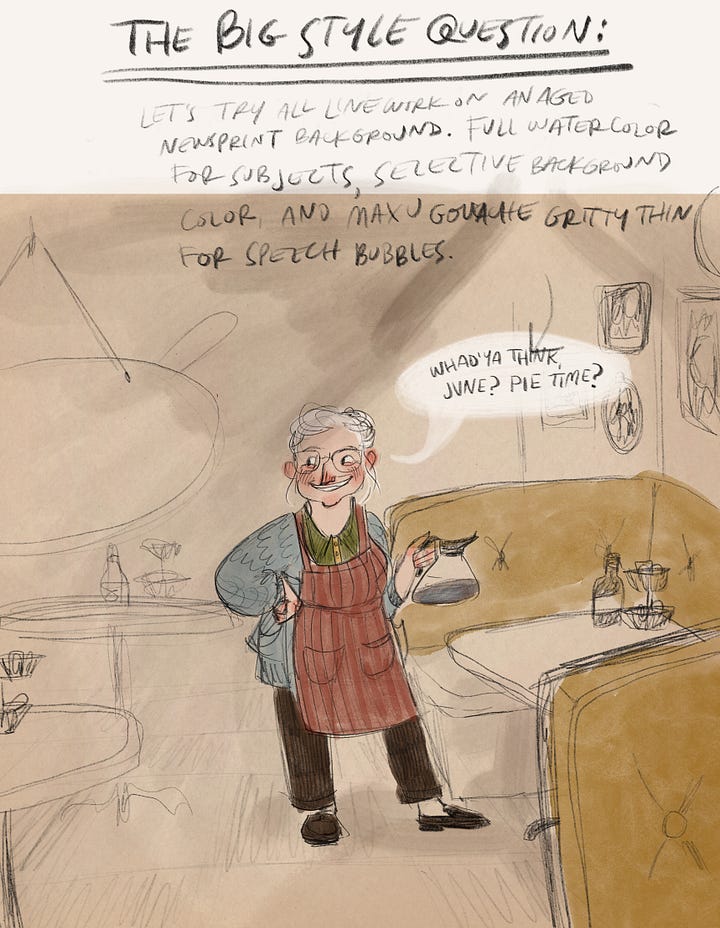 THE BIG STYLE QUESTION:
LET'S TRY ALL LINEWORK ON AN AGED
NEWSPRINT BACKGROUND. FULL WATERCOLOR
FOR SUBJECTS, SELECTIVE BACKGROUND
COLOR, AND MAXU GOUACHE GRITTY THIN
FOR SPEECH BUBBLES.
WHAD'YA THINK,
JUNE? PIE TIME?